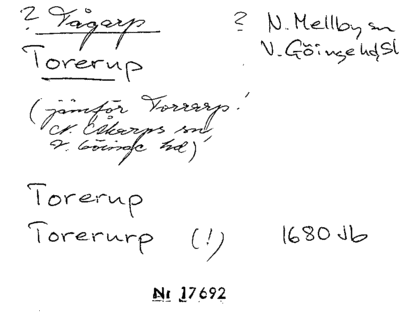 ? Tågarp
Torerup
? N. Mellby sn
V. Göinge hd, Sk
(jämför Torrarp!
N. Åkarps sn,
V. Göinge hd)
Torerup
Torerurp (!) 1680 Jb
Nr 17692